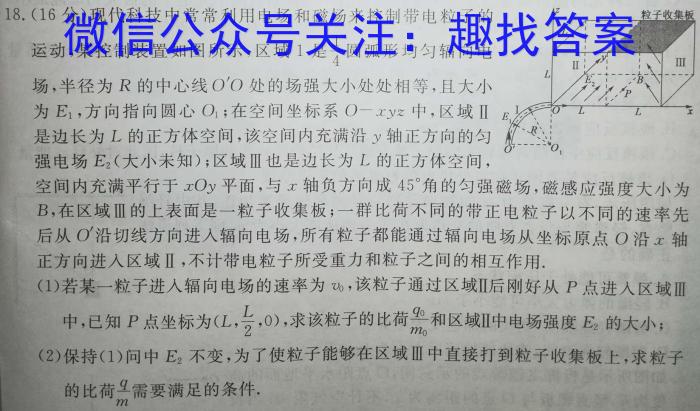 18.(16分)现代科技中常常利用电场和磁场来控制带电粒子的
微信公众号关注：趣找答案
运动,某控制装置如图所示,区域Ⅰ是1/4圆弧形均匀辐向电
场,半径为R的中心线O′O处的场强大小处处相等,且大小
为E₁,方向指向圆心O₁;在空间坐标系O-xyz中,区域Ⅱ
是边长为L的正方体空间,该空间内充满沿y轴正方向的匀
强电场E₂(大小未知);区域Ⅲ也是边长为L的正方体空间,
空间内充满平行于xOy平面,与x轴负方向成45°角的匀强磁场,磁感应强度大小为
B,在区域Ⅲ的上表面是一粒子收集板;一群比荷不同的带正电粒子以不同的速率先
后从O′沿切线方向进入辐向电场,所有粒子都能通过辐向电场从坐标原点O沿x轴
正方向进入区域Ⅱ,不计带电粒子所受重力和粒子之间的相互作用.
(1)若某一粒子进入辐向电场的速率为v₀,该粒子通过区域Ⅱ后刚好从P点进入区域Ⅲ
中,已知P点坐标为(L,L/2,0),求该粒子的比荷q₀/m₀和区域Ⅱ中电场强度E₂的大小;
(2)保持(1)问中E₂不变,为了使粒子能够在区域Ⅲ中直接打到粒子收集板上,求粒子
的比荷q/m需要满足的条件.
粒子收集板
Ⅱ
Ⅲ
L
B
P
O
L
L
x
R
O′
O₁